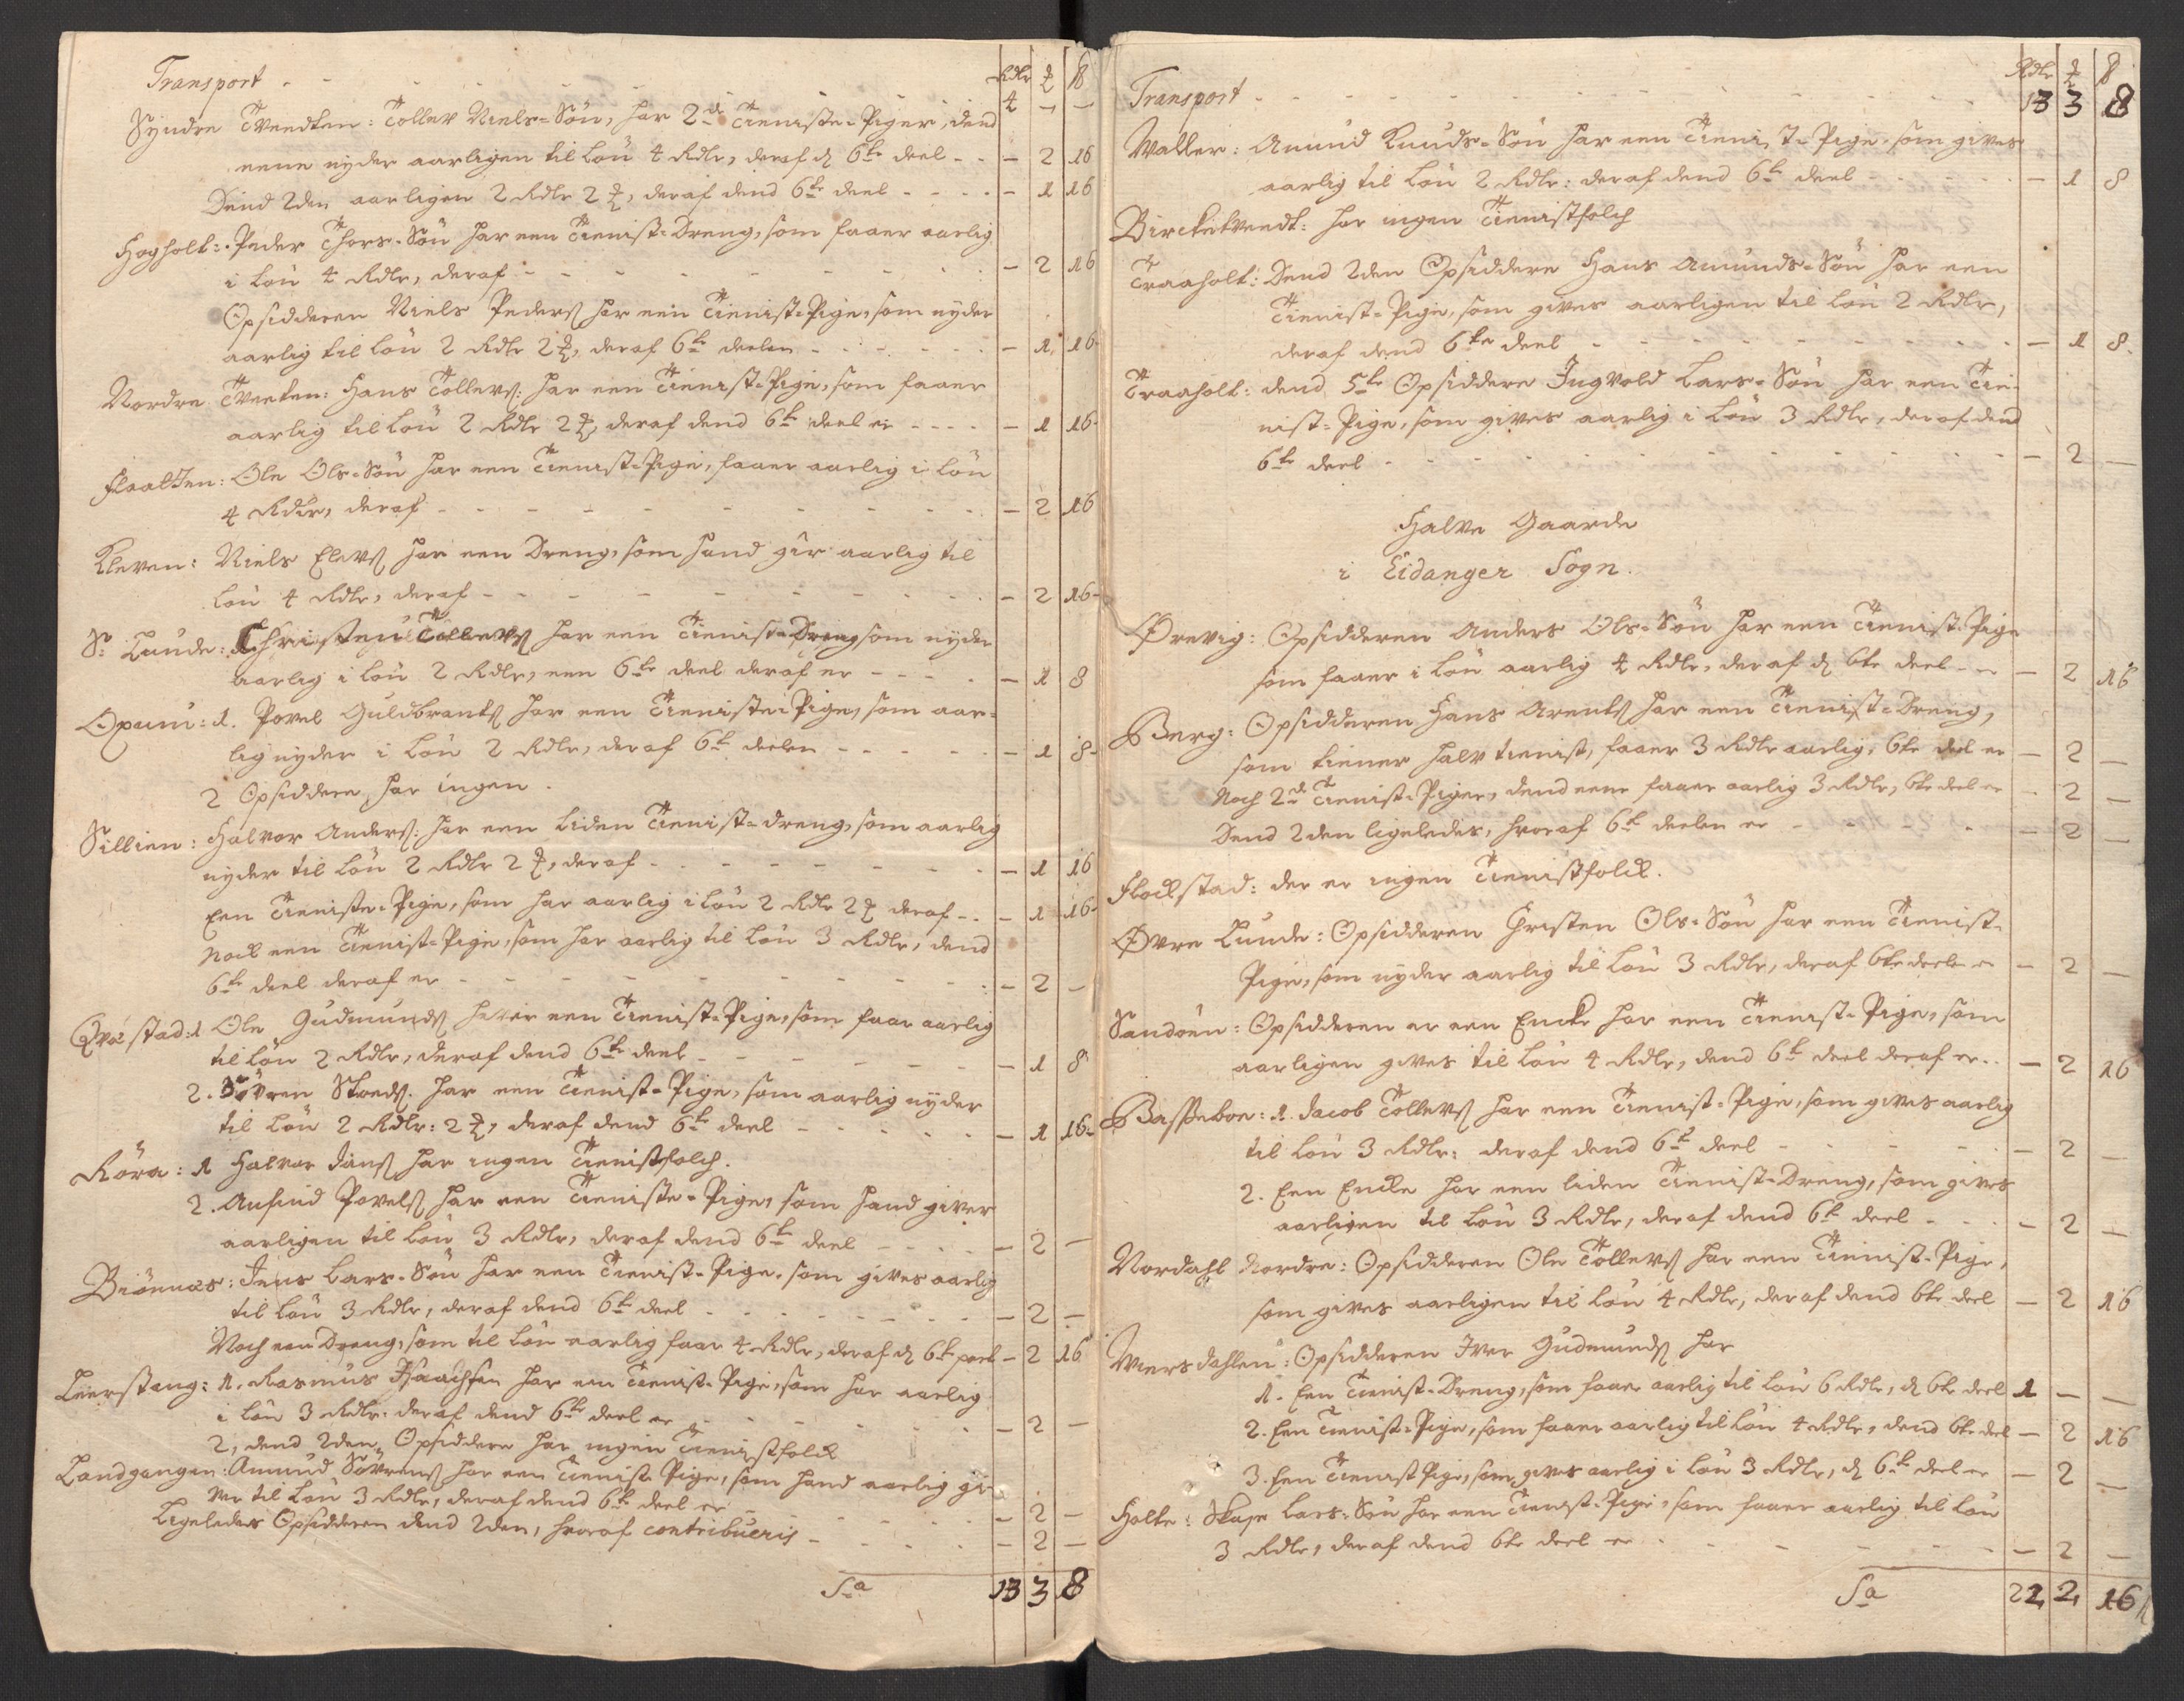 Transport - - - - - - Rdlr ꝝ ß
4 - -
Syndre Tvendten: Tollev Niels-Søn, har 2de Tieniste-Piger, dend
eene nyder aarligen til Løn 4 Rdlr, deraf d 6te deel - - 2 16
Dend 2den aarligen 2 Rdlr 2 ꝝ, deraf dend 6te deel - - - - 1 16
Hogholt: Peder Thors-Søn har een Tienist-Dreng, som faaer aarlig
i Løn 4 Rdlr, deraf - - - - - 2 16
Opsidderen Niels Peders har een Tienist-Pige, som nyder
aarlig til Løn 2 Rdlr 2 ꝝ, deraf 6te deelen - - - - 1 16
Nordre Tveeten: Hans Tollevs: har een Tienist-Pige, som faaer
aarlig til Løn 2 Rdlr 2 ꝝ, deraf dend 6te deel er - - - - 1 16
Flaatten: Ole Ols-Søn har een Tienist-Pige, faaer aarlig i Løn
4 Rdlr, deraf - - - - - - 2 16
Kleven: Niels Elevs har een Dreng, som hand gir aarlig til
Løn 4 Rdlr, deraf - - - - - - 2 16
S: Lunde: Christen Tollevs har een Tienist-Dreng som nyder
aarlig i Løn 2 Rdlr, een 6te deel deraf er - - - - 1 8
Opaun: 1. Povel Guldbrands har een Tieniste-Pige, som aar-
lig nyder i Løn 2 Rdlr, deraf 6te deelen - - - - 1 8
2 Opsiddere, har ingen.
Sillien: Halvor Anders: har een liden Tienist-dreng, som aarlig
nyder til Løn 2 Rdlr 2 ꝝ, deraf - - - - - 1 16
Een Tieniste-Pige, som har aarlig i Løn 2 Rdlr 2 ꝝ deraf - - 1 16
Nock een Tienist-Pige, som har aarlig til Løn 3 Rdlr, dend
6te deel deraf er - - - - - 2 -
Qvestad: 1 Ole Gudmunds har een Tienist-Pige, som faar aarlig
til Løn 2 Rdlr, deraf dend 6te deel - - - - 1 8
2. Søvren har een Tienist-Pige, som aarlig nyder
til Løn 2 Rdlr: 2 ꝝ, deraf dend 6te deel - - - - 1 16
Röra: 1 Halvor Jans har ingen Tienistfolch.
2. Anfind Povels har een Tieniste-Pige, som hand giver
aarligen til Løn 3 Rdlr, deraf dend 6te deel - - - - 2 -
Biönnæs: Jens Lars-Søn har een Tienist-Pige, som gives aarlig
til Løn 3 Rdlr, deraf dend 6te deel - - - - 2 -
Noch een Dreng, som til Løn aarlig faar 4 Rdlr, deraf d 6te part - 2 16
Leerstang: 1. Rasmus Isaachsen har een Tienist-Pige, som har aarlig
i Løn 3 Rdlr: deraf dend 6te deel er - - - - 2 -
2, dend 2den Opsiddere har ingen Tienistfolck
Landgangen: Amund Søvrens har een Tienist-Pige, som hand aarlig gi-
ver til Løn 3 Rdlr, deraf dend 6te deel er - - - - 2 -
Ligeledes Opsidderen dend 2den, hvoraf contribueris - - - - 2 -
Sa 13 3 8
Transport - - - - - - Rdlr ꝝ ß
13 3 8
Waller: Amund Knuds-Søn har een Tienist-Pige, som gives
aarlig til Løn 2 Rdlr: deraf dend 6te deel - - - - 1 8
Bircketvendt: har ingen Tienistfolch
Traaholt: Dend 2den Opsiddere Hans Amunds-Søn har een
Tienist-Pige, som gives aarligen til Løn 2 Rdlr,
deraf dend 6te deel - - - - 1 8
Traaholt: dend 5te Opsiddere Ingvold Lars-Søn har een Tie-
nist-Pige, som gives aarlig i Løn 3 Rdlr, deraf dend
6te deel - - - - 2 -
Halve Gaarde
i Eidanger Sogn.
Ørevig: Opsidderen Anders Ols-Søn har een Tienist-Pige
som faaer i Løn aarlig 4 Rdlr, deraf d 6te deel - - 2 16
Berg: Opsidderen Hans Arents har een Tienist-Dreng,
som tiener halv tienist, faaer 3 Rdlr aarlig, 6te deel er - 2 -
Noch 2de Tienist-Piger, dend eene faaer aarlig 3 Rdlr, 6te deel er - 2 -
Dend 2den ligeledes, hvoraf 6te deelen er - - - - 2 -
Flockstad: der er ingen Tienistfolck.
Øvre Lunde: Opsidderen Christen Ols-Søn har een Tienist-
Pige, som nyder aarlig til Løn 3 Rdlr, deraf 6te deele er - 2 -
Sandøen: Opsidderen er een Encke har een Tienist-Pige, som
aarligen gives til Løn 4 Rdlr, dend 6te deel deraf er - - 2 16
Basseboe: 1. Jacob Tollevs har een Tienist-Pige, som gives aarlig
til Løn 3 Rdlr: deraf dend 6te deel - - - - 2 -
2. Een Encke har een liden Tienist-Dreng, som gives
aarligen til Løn 3 Rdlr, deraf dend 6te deel - - - - 2 -
Nordahl Nordre: Opsidderen Ole Tollevs har een Tienist-Pige,
som gives aarligen til Løn 4 Rdlr, deraf dend 6te deel - 2 16
Wiersdahlen: Opsidderen Iver Gudmunds har
1. Een Tienist-Dreng, som faaer aarlig til Løn 6 Rdlr, d 6te deel 1 - -
2. Een Tienist-Pige, som faaer aarlig til Løn 4 Rdlr, dend 6te deel - 2 16
3. Een Tienist Pige, som gives aarlig i Løn 3 Rdlr, d 6te deel er - 2 -
Holte: Lars-Søn har een Tienist-Pige, som faaer aarlig til Løn
3 Rdlr, deraf dend 6te deel er - - - - 2 -
Sa 22 2 16